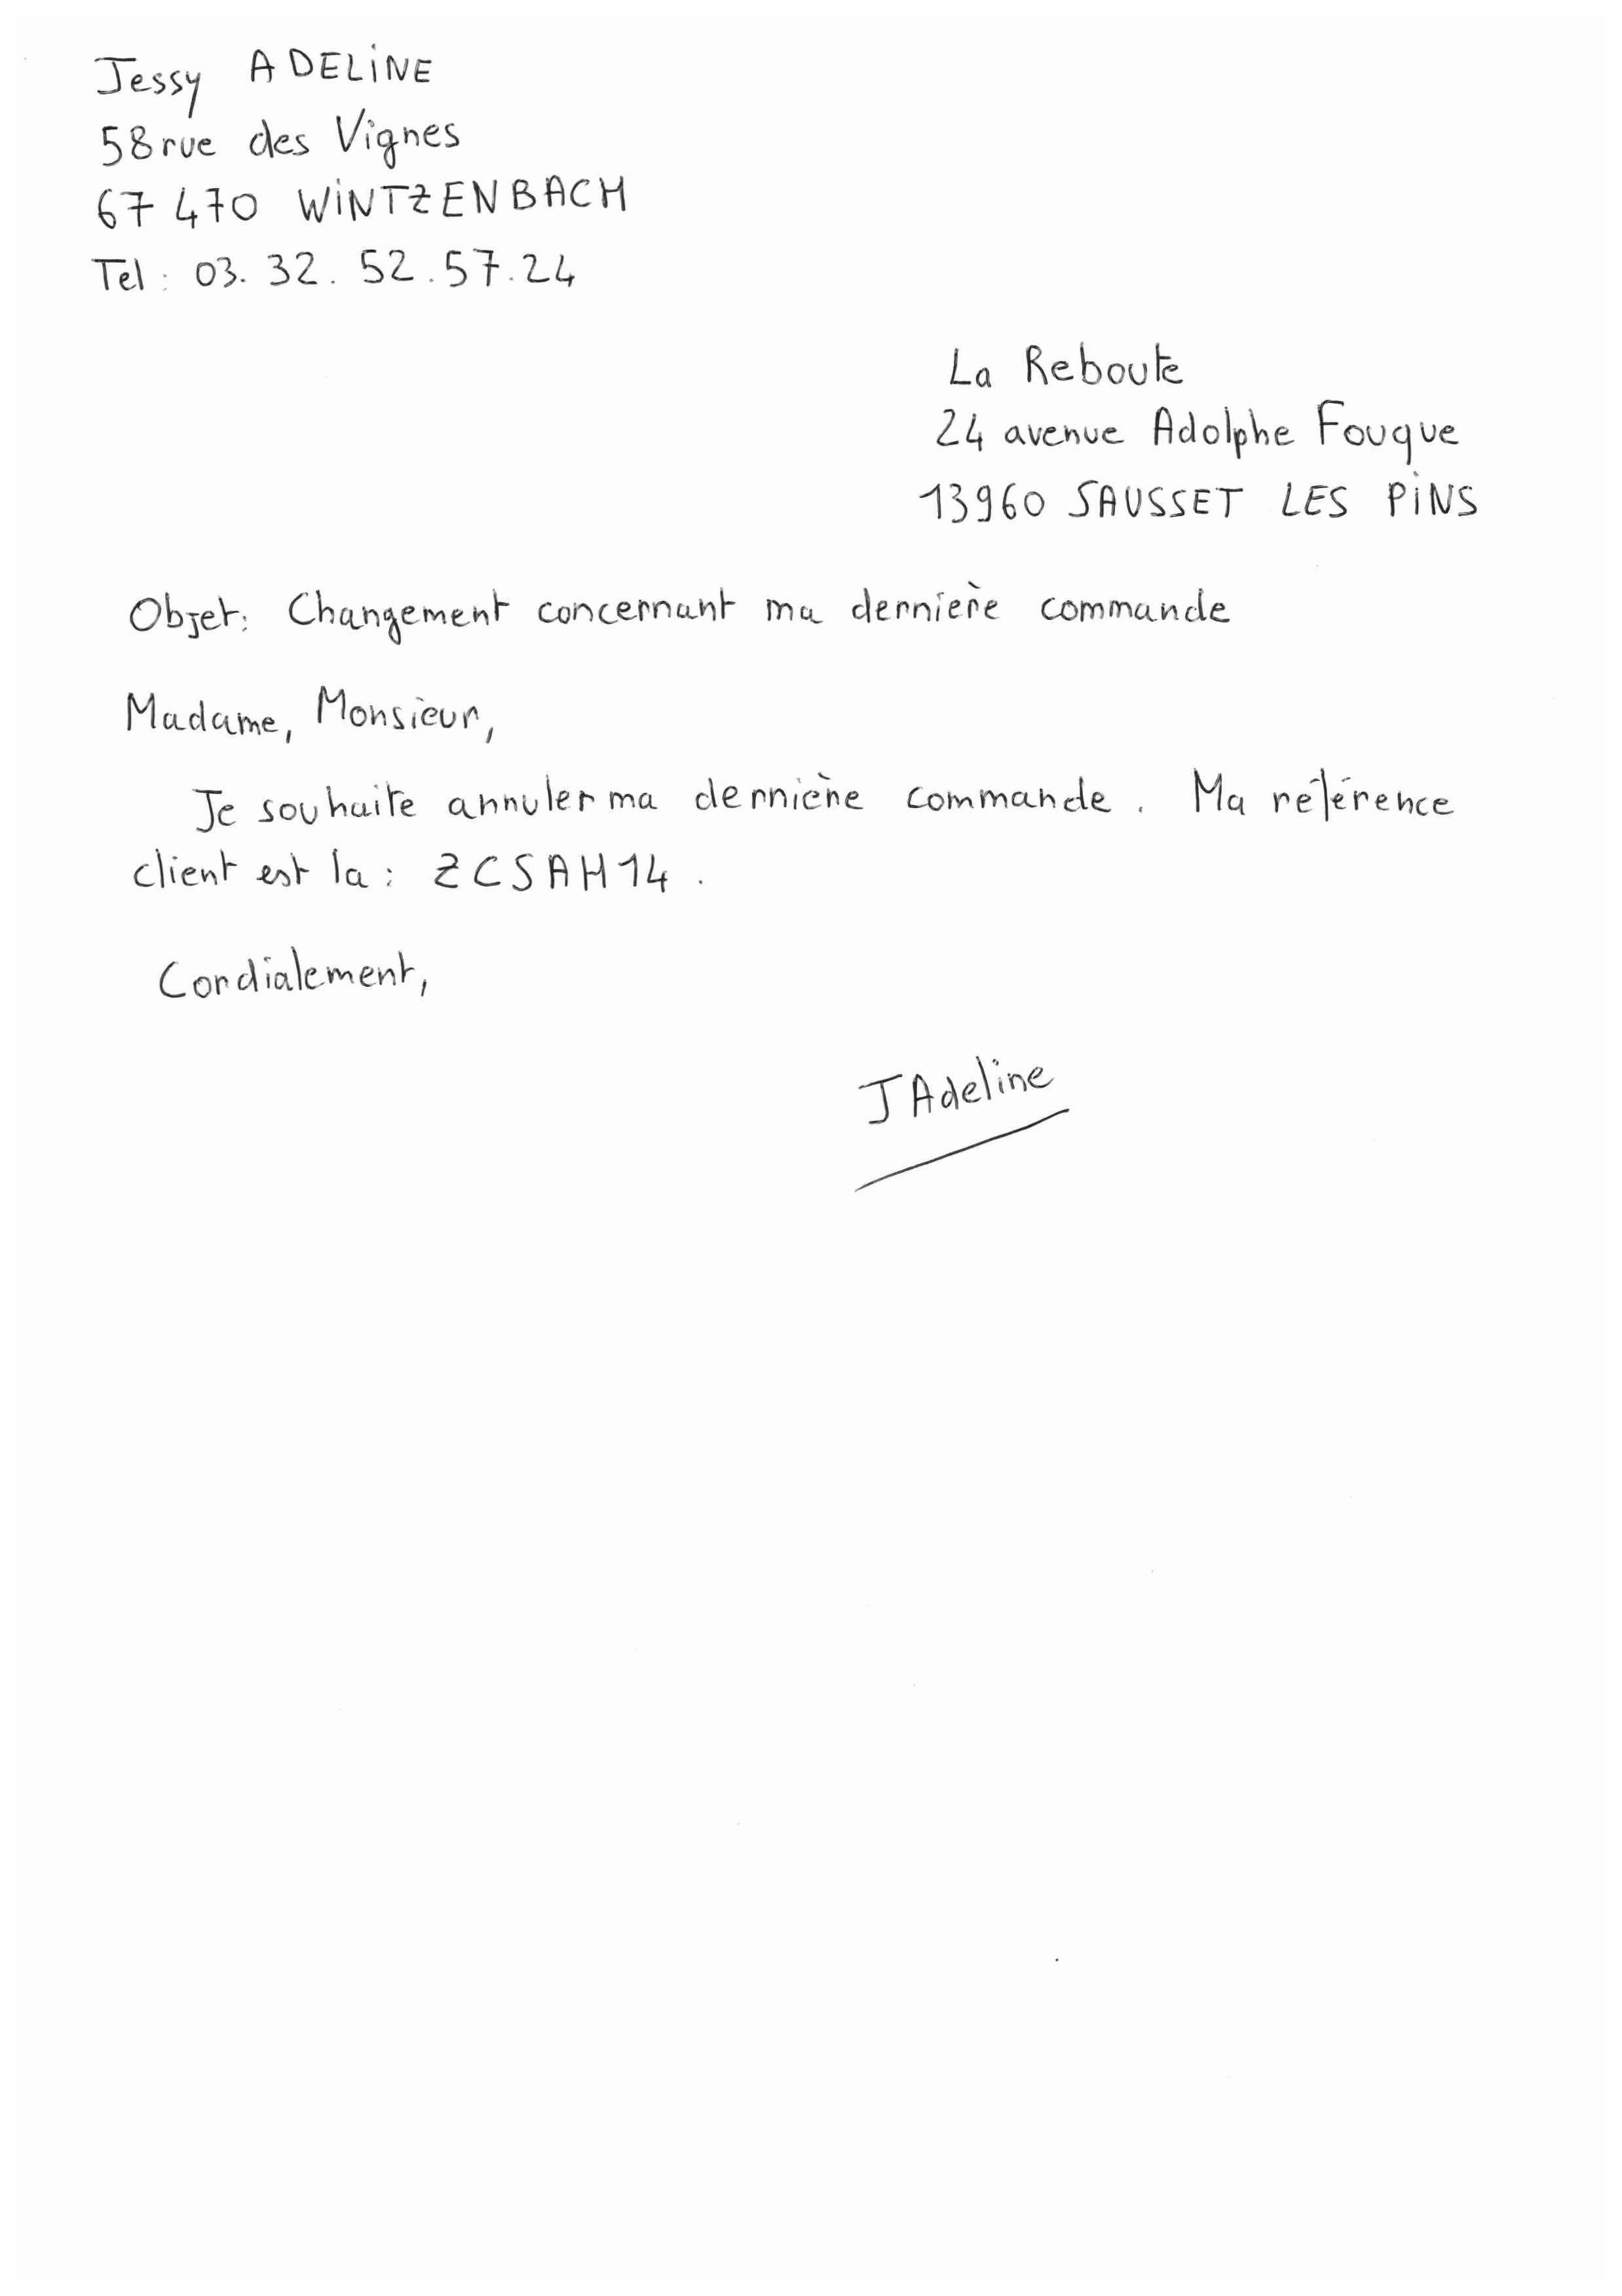 Jessy ADELINE
58 rue des Vignes
67 470 WINTZENBACH
Tel : 03. 32. 52. 57. 24
La Reboute
24 avenue Adolphe Fouque
13960 SAUSSET LES PINS
Objet: Changement concernant ma dernière commande
Madame, Monsieur,
Je souhaite annuler ma dernière commande. Ma référence
client est la : ZCSAH14.
Cordialement,
JAdeline